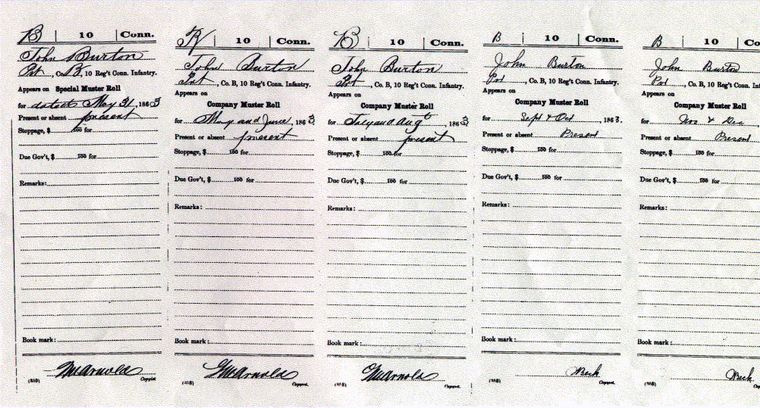 B | 10 | Conn.
John Burton
Pvt, Co. B, 10 Reg't Conn. Infantry.
Appears on Special Muster Roll
for dated May 31, 1863
Present or absent present
Stoppage, $ 100 for
Due Gov't, $ 100 for
Remarks:
Book mark:
(858) Copyist.
B | 10 | Conn.
John Burton
Pvt, Co. B, 10 Reg't Conn. Infantry.
Appears on
Company Muster Roll
for May and June, 1863
Present or absent present
Stoppage, $ 100 for
Due Gov't, $ 100 for
Remarks:
Book mark:
(858) Copyist.
B | 10 | Conn.
John Burton
Pvt, Co. B, 10 Reg't Conn. Infantry.
Appears on
Company Muster Roll
for July and Aug, 1863
Present or absent present
Stoppage, $ 100 for
Due Gov't, $ 100 for
Remarks:
Book mark:
(858) Copyist.
B | 10 | Conn.
John Burton
Pvt, Co. B, 10 Reg't Conn. Infantry.
Appears on
Company Muster Roll
for Sept & Oct, 1863.
Present or absent Present
Stoppage, $ 100 for
Due Gov't, $ 100 for
Remarks:
Book mark:
(858) Copyist.
B | 10
John Burton
Pvt, Co. B, 10 Reg't
Appears on
Company Muster
for Nov & Dec
Present or absent Present
Stoppage, $ 100 for
Due Gov't, $ 100 for
Remarks:
Book mark:
(858)